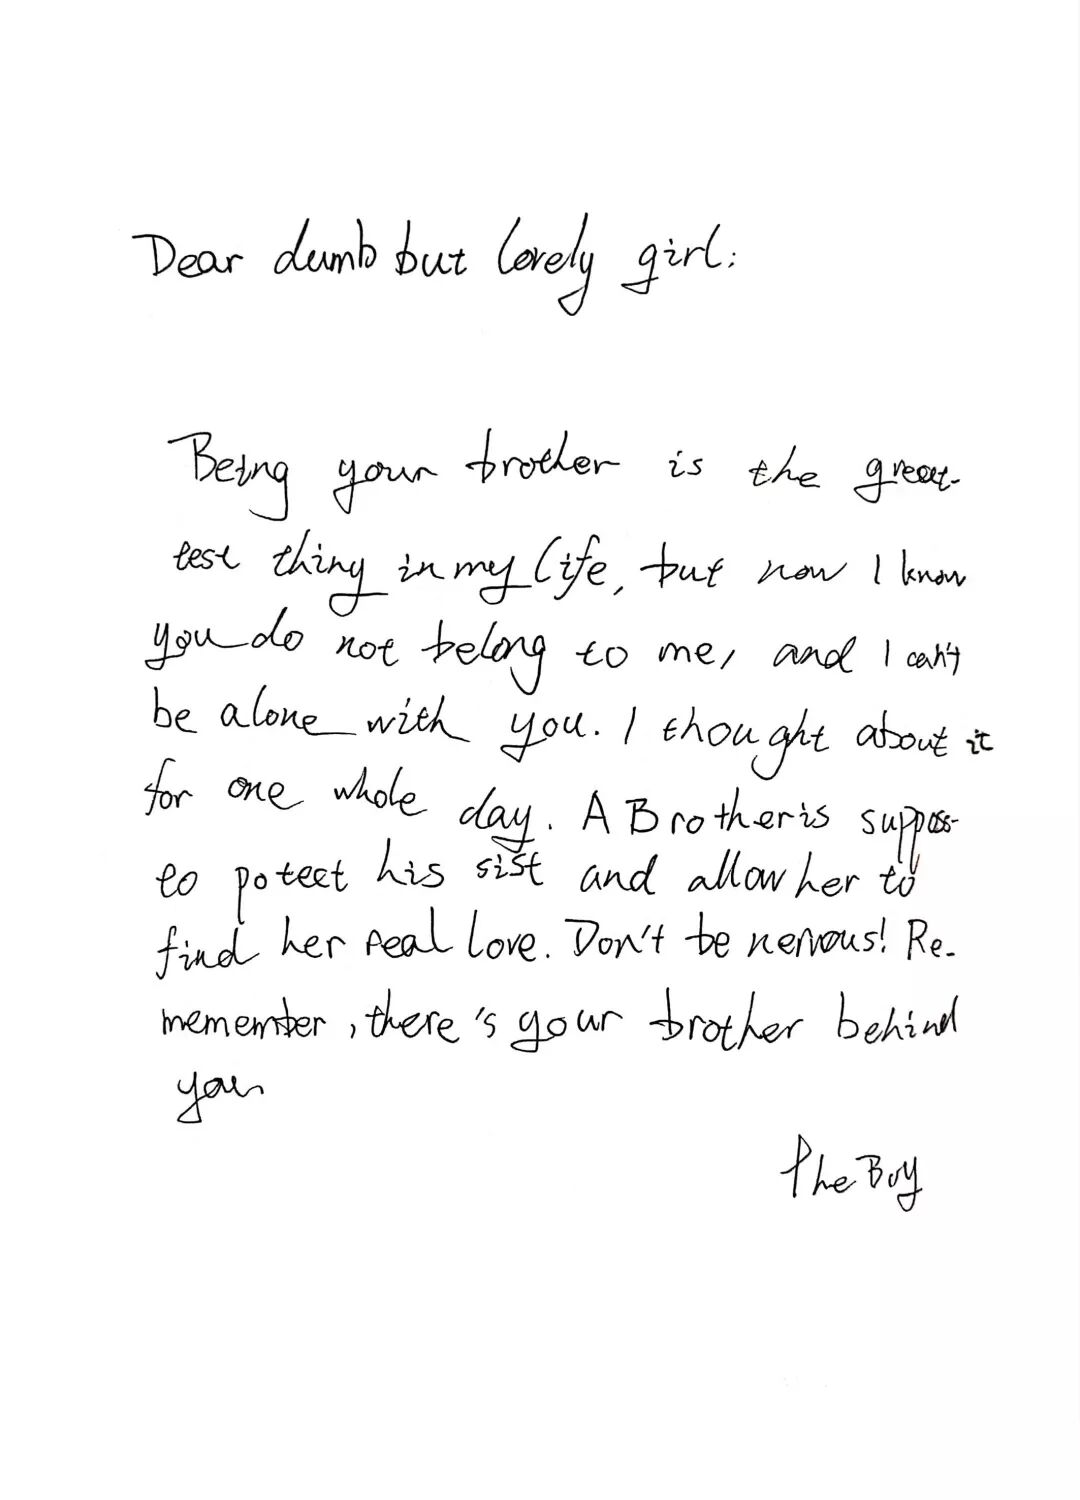 Dear dumb but lovely girl:
Being your brother is the great-
test thing in my life, but now I know
you do not belong to me, and I can't
be alone with you. I thought about it
for one whole day. A Brother is suppos-
to potect his sist and allow her to
find her real love. Don't be nervous! Re-
memember, there's your brother behind
you
The Boy